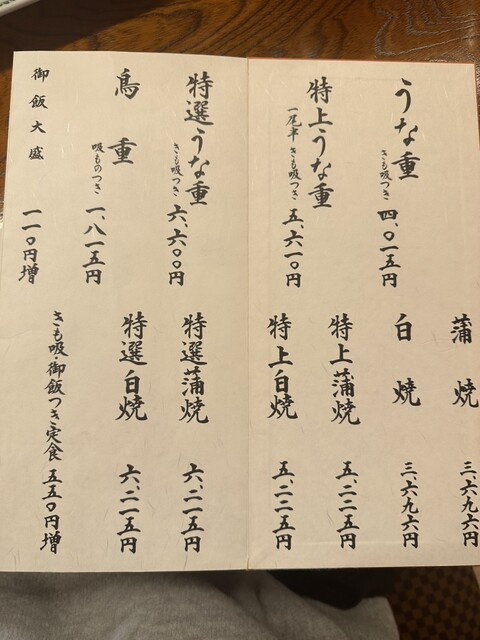 うな重
きも吸つき
四、〇一五円
特上うな重
一尾半 きも吸つき
五、六一〇円
蒲焼
三、六九六円
白焼
三、六九六円
特上蒲焼
五、二二五円
特上白焼
五、二二五円
特選うな重
きも吸つき
六、六〇〇円
鳥重
吸ものつき
一、八一五円
御飯大盛
一一〇円増
特選蒲焼
六、二一五円
特選白焼
六、二一五円
きも吸・御飯つき定食
五五〇円増